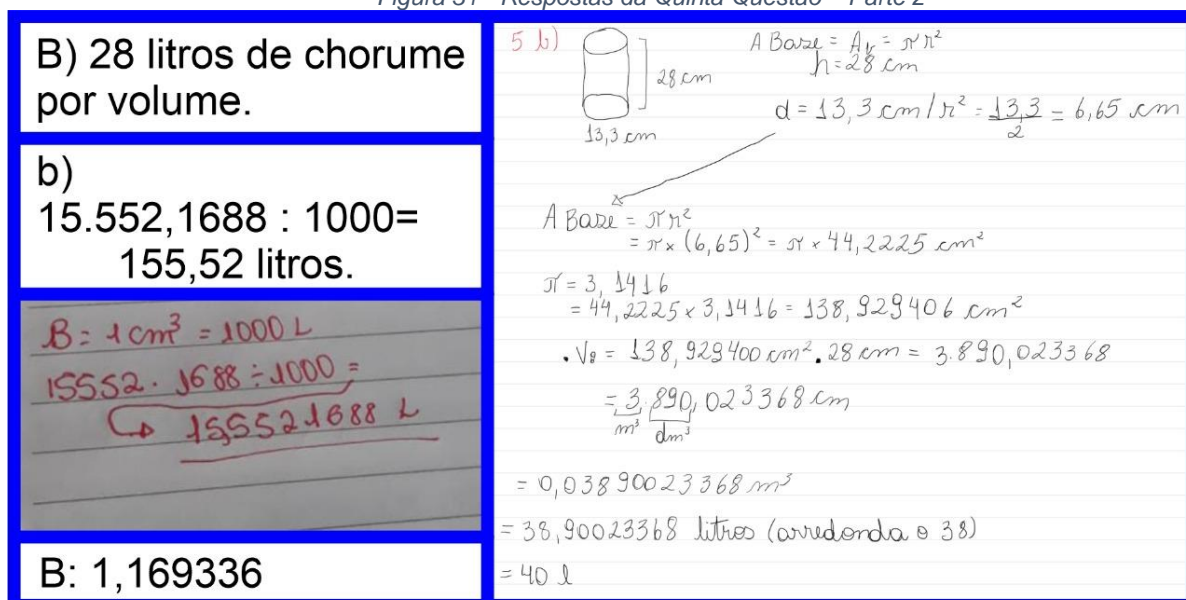 Figura 31 - Respostas da Quinta Questão – Parte 2
B) 28 litros de chorume
por volume.
b)
15.552,1688 : 1000=
155,52 litros.
B: 1 cm³ = 1000 L
15552. 1688 ÷ 1000 =
15,5521688 L
B: 1,169336
5 b)
28 cm
13,3 cm
A Base = Ab = π r²
h = 28 cm
d = 13,3 cm / r² = 13,3/2 = 6,65 cm
A Base = π r²
= π × (6,65)² = π × 44,2225 cm²
π = 3,1416
= 44,2225 × 3,1416 = 138,929406 cm²
. V = 138,929400 cm² . 28 cm = 3.890,023368
= 3.890,023368 cm
m³ dm³
= 0,03890023368 m³
= 38,90023368 litros (arredonda o 38)
= 40 l